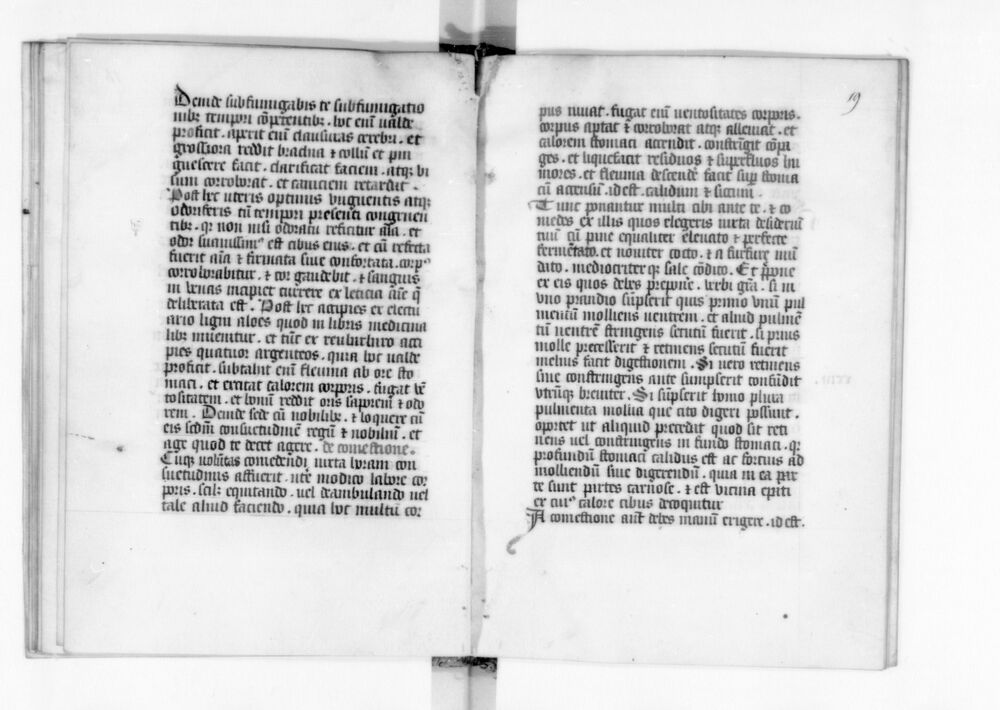 Deinde subfumigabis te subfumigatio
nibꝫ tempori cōpetentibꝫ. hoc eni᷑ ualde
proficit. aperit eni᷑ clausuras cerebri. et
grossiora reddit brachia ⁊ collū et pin
guescere facit. clarificat faciem. atqꝫ vi
sum corroborat. et caniciem retardat.
Post hec uteris optimis vnguentis atqꝫ
odoriferis tū tempori presenti congruen
tibꝫ. qꝛ non nisi odoratu reficitur aīa. et
odor suauissimꝰ est cibus eius. et cū refecta
fuerit aīa ⁊ firmata siue confortata. corpꝰ
corroborabitur. ⁊ cor gaudebit. ⁊ sanguis
in venas incipiet currere ex leticia aīe q̄
deliberata est. Post hec accipies ex electu
ario ligni aloes quod in libris medicina
libꝫ inuenitur. et tūc ex reubarbaro acci
pies quatuor argenteos. quia hoc ualde
proficit. subtahit enī fleuma ab ore sto
maci. et excitat calorem corporis. fugat vē
tositatem. et bonū reddit oris saporem ⁊ odo
rem. Deinde sede cū nobilibꝫ. ⁊ loquere cū
eis scdm̄ consuetudinem regū ⁊ nobiliū. et
age quod te decet agere. de comestione.
Cūqꝫ volūtas comedendi iuxta horam con
suetudinis affuerit. utē modico labore cor
poris. scilꝫ equitando. vel deambulando vel
tale aliud faciendo. quia hoc multū cor
19
pus iuuat. fugat enī uentositates corporis.
corpus aptat ⁊ corroborat atqꝫ alleuiat. et
calorem stomaci accendit. constringit cōpa
ges. et liquefacit residuos ⁊ superfluos hu
mores. et fleuma descendē facit sup̄ stoma
cū accensū. id est. calidum ⁊ siccum.
Tunc ponantur multi cibi ante te. ⁊ co
medes ex illis quos elegeris iuxta desideriū
tuū cū pane equaliter eleuato ⁊ perfecte
fermētato. et nouiter cocto. ⁊ a furfure mū
dato. mediocriter qꝫ sale cōdito. Et p̄pone
ex eis quos debes prepone᷑. verbi gr̄a. si in
vno prandio sūpserit quis primo vnū pul
mentū molliens uentrem. et aliud pulmē
tū uentrē stringens secutū fuerit. si prius
molle precesserit ⁊ retinens secutū fuerit
melius facit digestionem. Si uero retinens
siue constringens ante sumpserit confūdit
vtrūqꝫ breuiter. Si sūpserit homo plura
pulmenta mollia que cito digeri possunt.
oportet ut aliquid precedit quod sit reti
nens uel constringens in fundo stomaci. qꝛ
profundū stomaci calidus est ac fortius ad
molliendū siue digerendū. quia in ea par
te sunt partes carnose. ⁊ est vicina epati
ex cuiꝰ calore cibus decoquitur
A comestione autē debes manū erigere. id est.